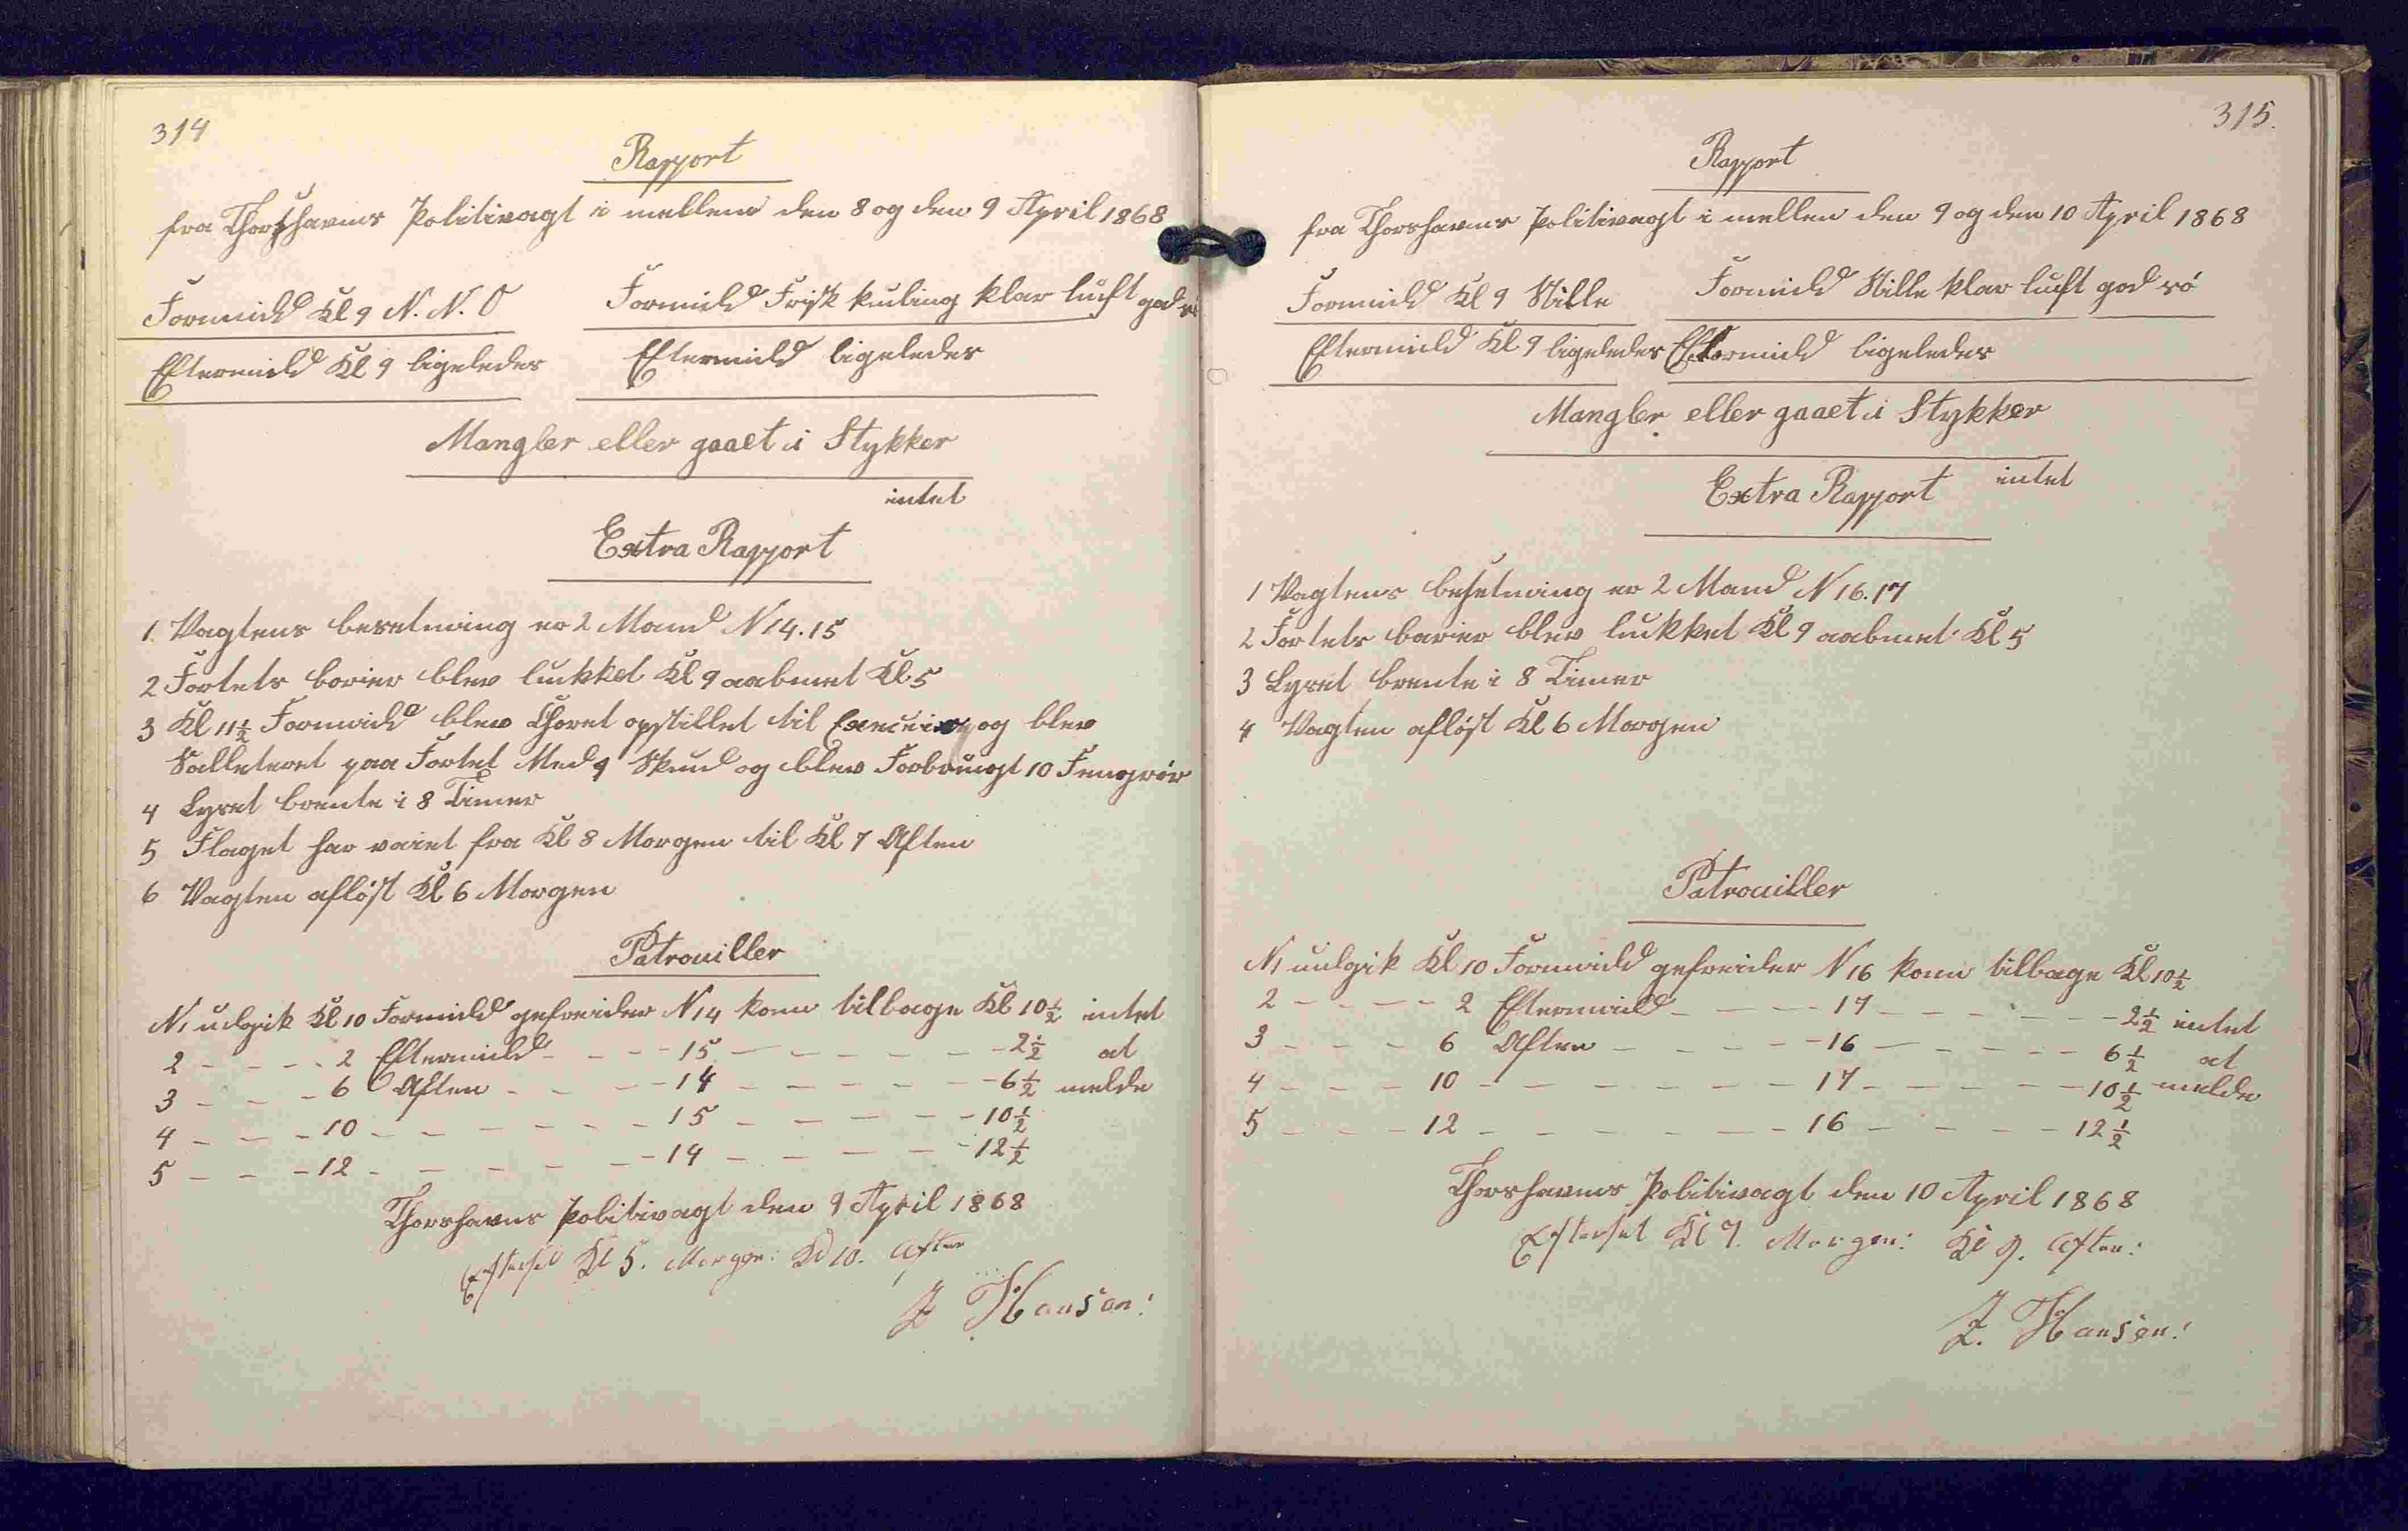 314
Rapport
fra Thorshavns Politivagt i mellem den 8 og den 9 April 1868
Formidd Kl 9 N. N. O
Formidd Frisk kuling klar luft god
Eftermidd Kl 9 ligeledes
Eftermidd ligeledes
Mangler eller gaaet i Stykker
intet
Extra Rapport
1 Vagtens besetning er 2 Mand N 14. 15
2 Fortets barier blev lukket Kl 9 aabnet Kl 5
3 Kl 11½ Formidd blev Choret opstillet til og blev
Salleteret paa Fortet Med 9 Skud og blev Forbrugt 10 Fengrør
4 Lyset brente i 8 Timer
5 Flaget har vaiet fra Kl 8 Morgen til Kl 7 Aften
6 Vagten afløst Kl 6 Morgen
Patrouiller
N 1 udgik Kl 10 Formidd gefreider N 14 kom tilbage Kl 10½ intet
2 - - - - 2 Eftermidd - - - - 15 - - - - - - 2½ at
3 - - - 6 Aften - - - - 14 - - - - - - 6½ melde
4 - - - 10 - - - - - - - 15 - - - - - 10½
5 - - - 12 - - - - - - - 14 - - - - - 12½
Thorshavns Politivagt den 9 April 1868
Efterset Kl 5. Morgen: Kl 10. Aften
Z Hansen:
315.
Rapport
fra Thorshavns Politivagt i mellem den 9 og den 10 April 1868
Formidd Kl 9 Stille
Formidd Stille klar luft god sö
Eftermidd Kl 9 ligeledes
Eftermidd ligeledes
Mangler eller gaaet i Stykker
intet
Extra Rapport
1 Vagtens besetning er 2 Mand N 16. 17
2 Fortets barier blev lukket Kl 9 aabnet Kl 5
3 Lyset brente i 8 Timer
4 Vagten afløst Kl 6 Morgen
Patrouiller
N 1 udgik Kl 10 Formidd gefreider N 16 kom tilbage Kl 10½
2 - - - - 2 Eftermidd - - - - 17 - - - - - - 2½ intet
3 - - - 6 Aften - - - - - 16 - - - - - 6½ at
4 - - - 10 - - - - - - - 17 - - - - - 10½ melde
5 - - - 12 - - - - - - - 16 - - - - 12½
Thorshavns Politivagt den 10 April 1868
Efterset Kl 7. Morgen: Kl 9. Aften:
Z. Hansen: